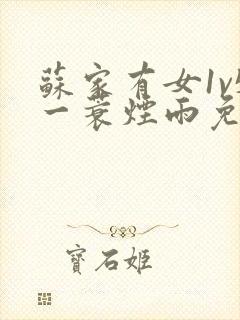 蘇家有女1v
一蓑煙雨免
寶石姬